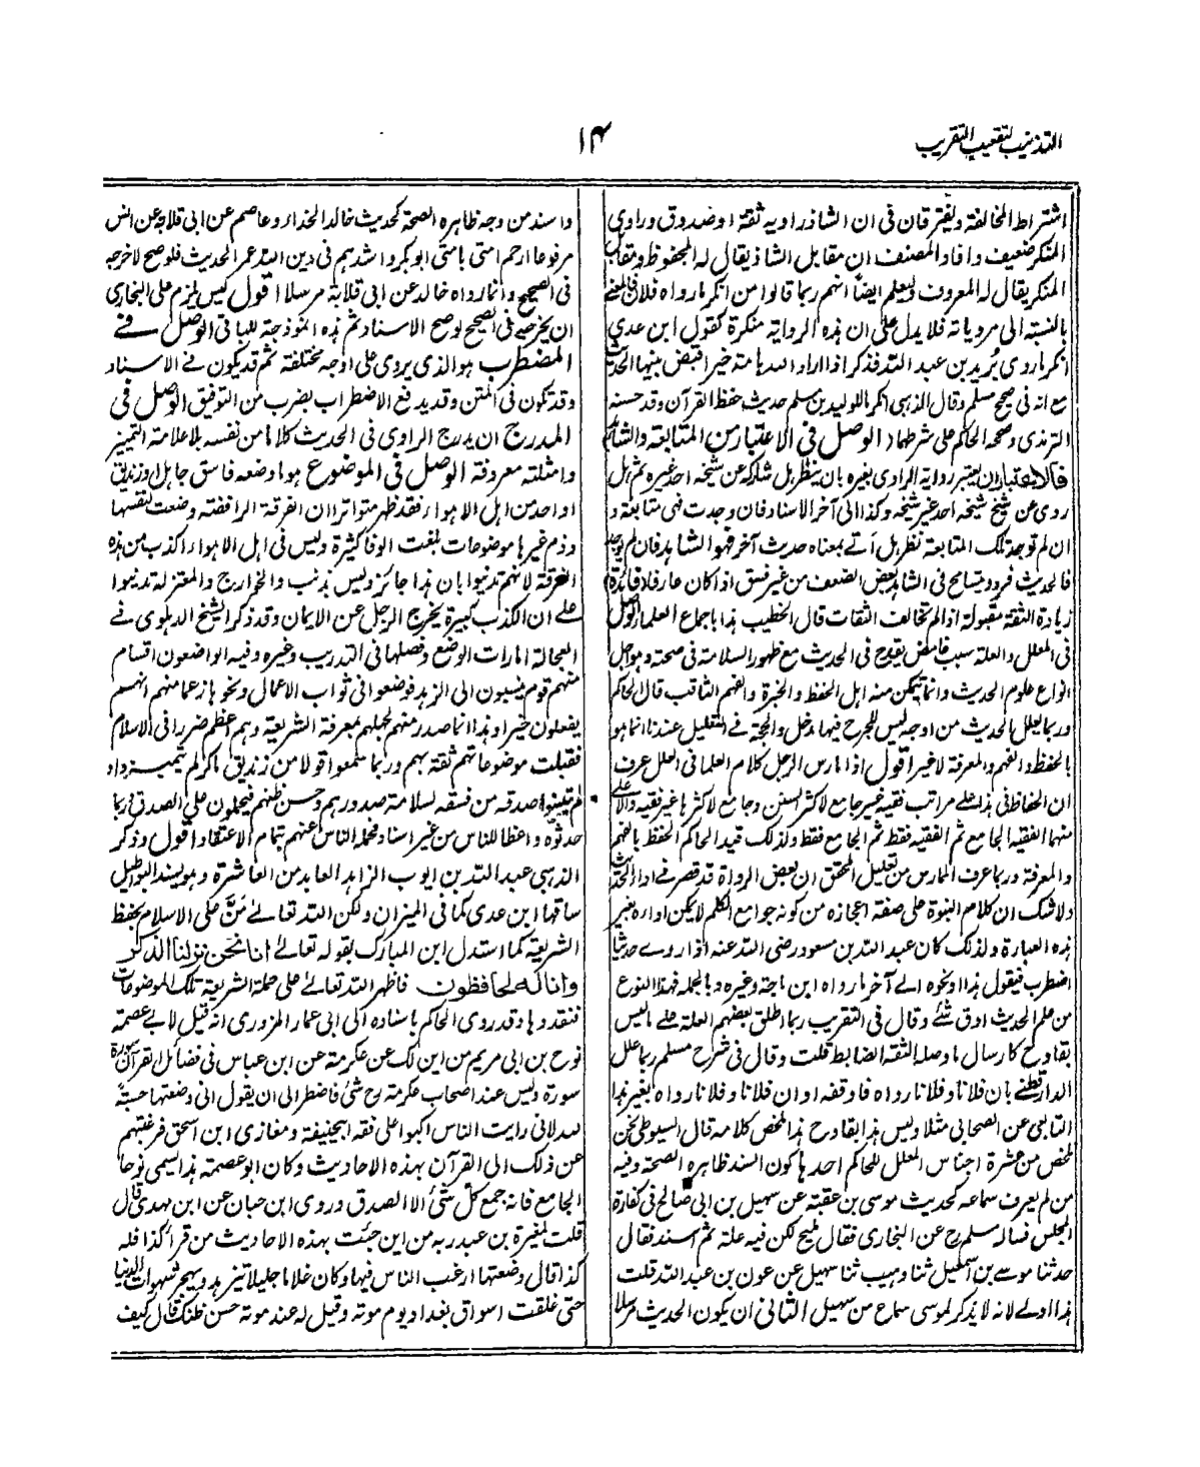 التذنيب لتعقيب التقريب
۱۴
اشتراط المخالفة ويفترقان فى ان الشاذ راويه ثقة او صدوق وراوى
المنكر ضعيف وافاد المصنف ان مقابل الشاذ يقال له المحفوظ ومقابل
المنكر يقال له المعروف وليعلم ايضاً انهم ربما قالوا من انكر ما رواه فلان
بالنسبة الى مروياته فلا يدل على ان هذه الرواية منكرة كقول ابن عدى
انكر ما روى بريد بن عبد الله فذكر اذا اراد الله بامة خيرا قبض نبيها الحديث
مع انه فى صحيح مسلم وقال الذهبى انكر ما للوليد بن مسلم حديث حفظ القرآن وقد حسنه
الترمذى وصححه الحاكم على شرطهما الوصل فى الاعتبار من المتابعة والشاهد
فالاعتبار ان يعتبر رواية الراوى بغيره بان ينظر هل شاركه عن شيخه احد غيره ثم هل
روى عن شيخ شيخه احد غير شيخه وكذا الى آخر الاسناد فان وجدت فهى متابعة و
ان لم توجد تلك المتابعة نظر هل اتى بمعناه حديث آخر فهو الشاهد فان لم يوجد
فالحديث فرد ويتسامح فى الشاهد بعض الضعف من غير فسق اذا كان عارفا فائدة
زيادة الثقة مقبولة اذا لم تخالف الثقات قال الخطيب هذا باجماع العلماء الوصل
فى المعلل والعلة سبب غامض يقدح فى الحديث مع ظهور السلامة فى صحته وهو اجل
انواع علوم الحديث وانما يتمكن منه اهل الحفظ والخبرة والفهم الثاقب قال الحاكم
وربما يعلل الحديث من اوجه ليس للجرح فيها مدخل والحجة فى التعليل عندنا انما هو
بالحفظ والفهم والمعرفة لا غير اقول اذا مارس الرجل كلام العلماء فى العلل عرف
ان الحفاظ فى هذا على مراتب فقيه غير جامع لاكثر السنن وجامع لاكثرها غير فقيه والاعلى
منهما الفقيه الجامع ثم الفقيه فقط ثم الجامع فقط ولذلك قيد الحاكم الحفظ بالفهم
والمعرفة وربما عرف الممارس من تعليل المحقق ان بعض الرواة قد قصر فى اداء الحديث
ولا شك ان كلام النبوة على صفة اعجازه من كونه جوامع الكلم لا يمكن اداره بغير
هذه العبارة ولذلك كان عبد الله بن مسعود رضى الله عنه اذا روى حديثا
اضطرب فيقول هذا او نحوه الى آخر ما رواه ابن ماجة وغيره وبالجملة فهذا النوع
من علم الحديث ادق شئ وقال فى التقريب ربما اطلق بعضهم العلة على ما ليس
بقادح كارسال ما وصله الثقة الضابط قلت وقال فى شرح مسلم ربما علل
الدارقطنى بان فلانا وفلانا رواه فاوقفه او ان فلانا وفلانا رواه بغير هذا
التابعى عن الصحابى مثلا وليس هذا بقادح هذا ملخص كلامه قال السيوطى نحن
لخص من عشرة اجناس المعلل للحاكم احدها كون السند ظاهره الصحة وفيه
من لم يعرف سماعه كحديث موسى بن عقبة عن سهيل بن ابى صالح فى كفارة
المجلس فساله مسلم رح عن البخارى فقال مليح لكن فيه علة ثم اسند فقال
حدثنا موسى بن اسمعيل ثنا وهيب ثنا سهيل عن عون بن عبد الله قلت
هذا اولى لانه لا يذكر لموسى سماع من سهيل الثانى ان يكون الحديث مرسلا
واسند من وجه ظاهره الصحة كحديث خالد الحذاء وعاصم عن ابى قلابة عن انس
مرفوعا ارحم امتى بامتى ابو بكر واشدهم فى دين الله عمر الحديث فلو صح لاخرجه
فى الصحيح وانما رواه خالد عن ابى قلابة مرسلا اقول ليس يلزم على البخارى
ان يخرجه فى الصحيح لو صح الاسناد ثم هذه انموذجة للباقى الوصل فى
المضطرب هو الذى يروى على اوجه مختلفة ثم قد يكون فى الاسناد
وقد تكون فى المتن وقد يدفع الاضطراب بضرب من التوفيق الوصل فى
المدرج ان يدرج الراوى فى الحديث كلاما من نفسه بلا علامة التمييز
وامثلته معروفة الوصل فى الموضوع هو ما وضعه فاسق جاهل او زنديق
او احد من اهل الاهواء فقد ظهر متواترا ان الفرقة الرافضة وضعت لنفسها
وذم غيرها موضوعات بلغت الوفا كثيرة وليس فى اهل الاهواء اكذب من هذه
الفرقة لانهم تدينوا بان هذا جائز وليس بذنب والخوارج والمعتزلة تدينوا
على ان الكذب كبيرة يخرج الرجل عن الايمان وقد ذكر الشيخ الدهلوى فى
العجالة امارات الوضع وفصلها فى التدريب وغيره وفيه الواضعون اقسام
منهم قوم ينسبون الى الزهد فوضعوا فى ثواب الاعمال ونحوها زعما منهم انهم
يفعلون خيرا وهذا انما صدر منهم لجهلهم بمعرفة الشريعة وهم اعظم ضررا فى الاسلام
فقبلت موضوعاتهم ثقة بهم وربما سمعوا قولا من زنديق
لم يتبينوا صدقه من فسقه لسلامة صدورهم وحسن ظنهم فيحملون على الصدق فربما
حدثوه واعظا للناس من غير اسناد فحمله الناس عنهم بتمام الاعتقاد اقول وذكر
الذهبى عبد الله بن ايوب الزاهد العابد من العاشرة وهو يسند البواطيل
ساقها ابن عدى كما فى الميزان ولكن الله تعالى منّ على الاسلام بحفظ
الشريعة كما استدل ابن المبارك بقوله تعالى انا نحن نزلنا الذكر
وانا له لحافظون فاظهر الله تعالى على حملة الشريعة تلك الموضوعات
فنقدوها وقد روى الحاكم باسناده الى ابى عمار المروزى انه قيل لابى عصمة
نوح بن ابى مريم من اين لك عن عكرمة عن ابن عباس فى فضائل القرآن سورة
سورة وليس عند اصحاب عكرمة رح شئ فاضطر الى ان يقول انى وضعتها حسبة
لله لانى رايت الناس اكبوا على فقه ابيحنيفة ومغازى ابن اسحق فرغبتهم
عن ذلك الى القرآن بهذه الاحاديث وكان ابو عصمة هذا يسمى نوحا
الجامع فانه جمع كل شئ الا الصدق وروى ابن حبان عن ابن مهدى قال
قلت لميسرة بن عبد ربه من اين جئت بهذه الاحاديث من قرا كذا فله
كذا قال وضعتها ارغب الناس فيها وكان غلاما جليلا يتزهد ويهجر شهوات الدنيا
حتى غلقت اسواق بغداد يوم موته وقيل له عند موته حسن ظنك قال كيف